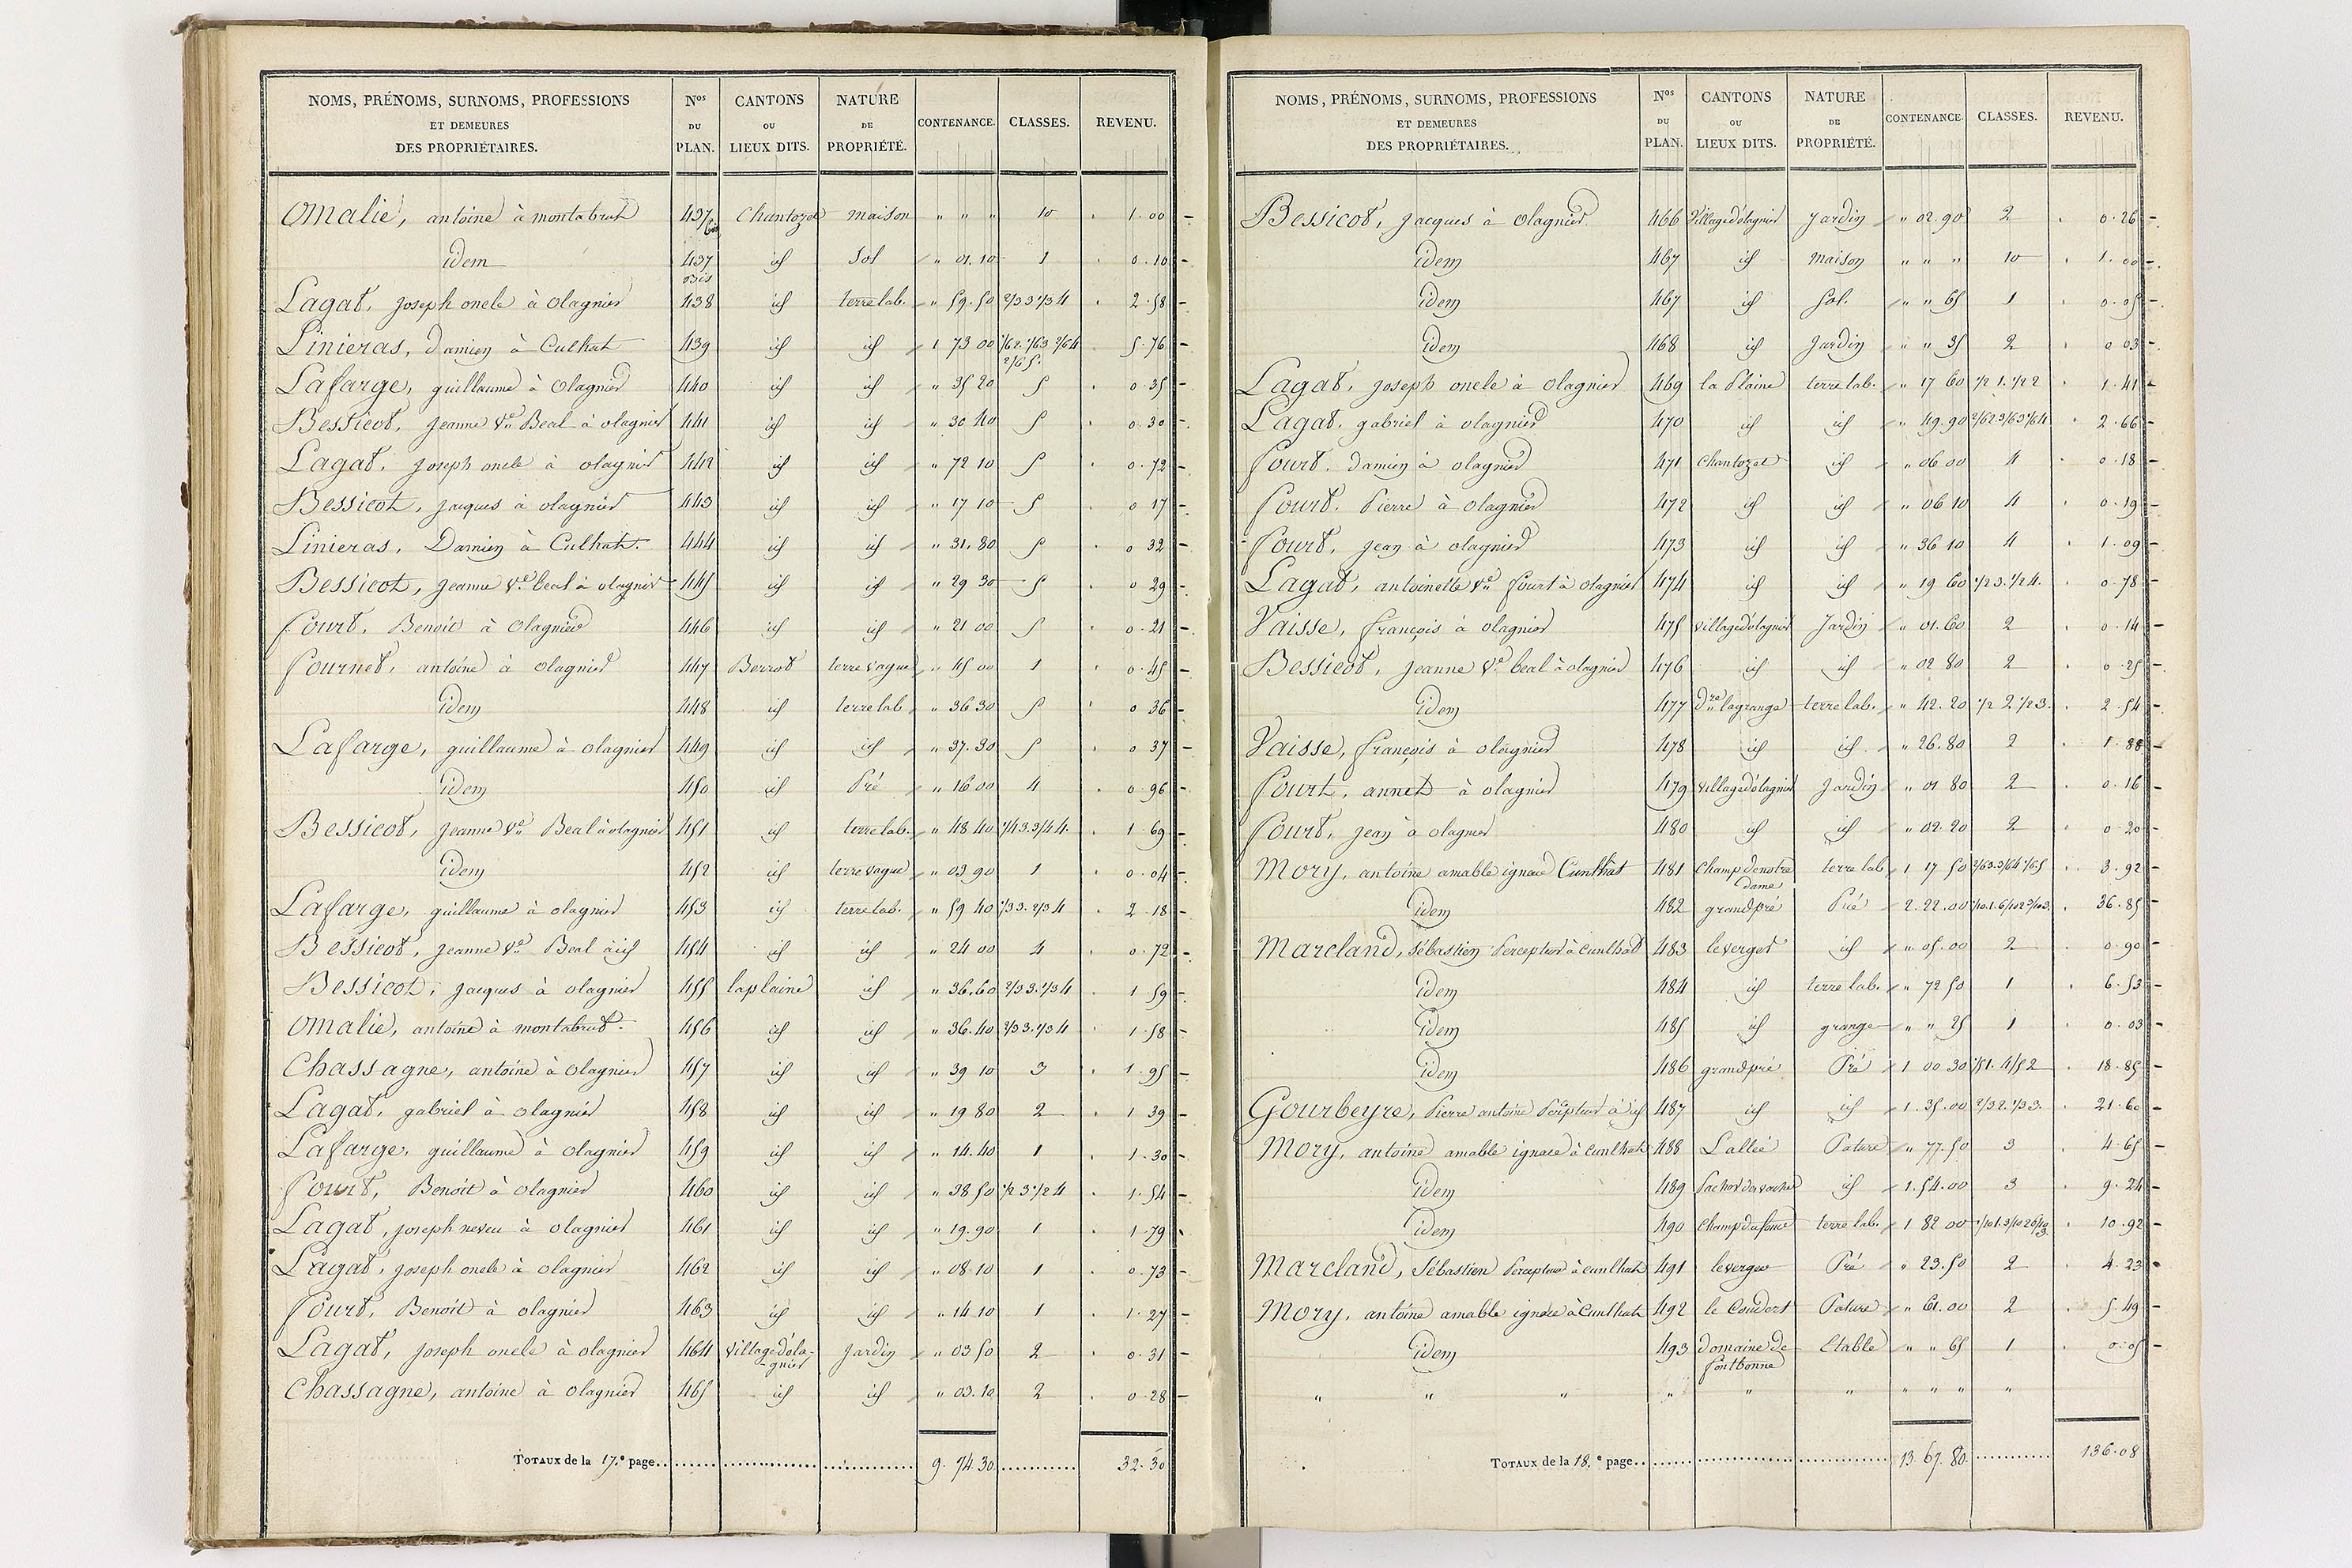 NOMS, PRÉNOMS, SURNOMS, PROFESSIONS ET DEMEURES DES PROPRIÉTAIRES. Nos DU PLAN. CANTONS OU LIEUX DITS. NATURE DE PROPRIÉTÉ. CONTENANCE. CLASSES. REVENU.
Omalie, antoine à montabrut 437 bis Chantozet maison " " " 10 1.00
idem 437 bis id Sol " 01.10 1 0.10
Lagat, joseph oncle à olagnier 438 id terre lab. " 59.50 2/3 3 1/3 4 2.58
Linieras, Damien à Culhat 439 id id 1 73 00 1/6 2. 1/6 3 2/6 4 2/6 5. 5.76
Lafarge, guillaume à Olagnier 440 id id " 35 20 5 0.35
Bessicot, jeanne Ve Beal à olagnier 441 id id " 30 40 5 0.30
Lagat, joseph oncle à olagnier 442 id id " 72 10 5 0.72
Bessicot, jacques à olagnier 443 id id " 17 10 5 0 17
Linieras, Damien à Culhat. 444 id id " 31.80 5 0 32
Bessicot, jeanne Ve beal à olagnier 445 id id " 29 30 5 0 29
Fourt, Benoit à Olagnier 446 id id " 21 00 5 0.21
Fournet, antoine à olagnier 447 Berrot terre vague " 45 00 1 0.45
idem 448 id terre lab. " 36 30 5 0 36
Lafarge, guillaume à olagnier 449 id id " 37.30 5 0 37
idem 450 id Pré " 16 00 4 0.96
Bessicot, jeanne Ve Beal à olagnier 451 id terre lab. " 48 40 1/4 3. 3/4 4. 1 69
idem 452 id terre vague " 03 90 1 0.04
Lafarge, guillaume à olagnier 453 id terre lab. " 59 40 1/3 3. 2/3 4 2.18
Bessicot, jeanne Ve Beal à id 454 id id " 24 00 4 0.72
Bessicot, jacques à olagnier 455 la plaine id " 36.60 2/3 3. 1/3 4 1 59
Omalie, antoine à montabrut. 456 id id " 36.40 2/3 3. 1/3 4 1.58
Chassagne, antoine à Olagnier 457 id id " 39 10 3 1.95
Lagat, gabriel à olagnier 458 id id " 19 80 2 1 39
Lafarge, guillaume à olagnier 459 id id " 14.40 1 1.30
Fourt, Benoit à olagnier 460 id id " 38 50 1/2 3 1/2 4 1.54
Lagat, joseph neveu à olagnier 461 id id " 19.90 1 1.79
Lagat, joseph oncle à olagnier 462 id id " 08 10 1 0.73
Fourt, Benoit à olagnier 463 id id " 14 10 1 1.27
Lagat, joseph oncle à olagnier 464 village d'ola-gnier jardin " 03 50 2 0.31
Chassagne, antoine à olagnier 465 id id " 03.10 2 0.28
TOTAUX de la 17.e page 9.74 30 32.30
NOMS, PRÉNOMS, SURNOMS, PROFESSIONS ET DEMEURES DES PROPRIÉTAIRES. Nos DU PLAN. CANTONS OU LIEUX DITS. NATURE DE PROPRIÉTÉ. CONTENANCE. CLASSES. REVENU.
Bessicot, jacques à olagnier 466 Village d'olagnier jardin " 02.90 2 0.26
idem 467 id maison " " " 10 1.00
idem 467 id Sol. " " 65 1 0.05
idem 468 id jardin " " 35 2 0 03
Lagat, joseph oncle à olagnier 469 la Plaine terre lab. " 17 60 1/2 1. 1/2 2 1.41
Lagat, gabriel à olagnier 470 id id " 49.90 2/6 2 3/6 3 1/6 4 2.66
Fourt, Damien à olagnier 471 Chantozet id " 06 00 4 0.18
Fourt, Pierre à olagnier 472 id id " 06 10 4 0.19
Fourt, jean à olagnier 473 id id " 36 10 4 1.09
Lagat, antoinette Ve Fourt à olagnier 474 id id " 19 60 1/2 3. 1/2 4. 0.78
Vaisse, françois à olagnier 475 village d'olagnier jardin " 01.60 2 0.14
Bessicot, jeanne Ve beal à olagnier 476 id id " 02 80 2 0.25
idem 477 Dre lagrange terre lab. " 42.20 1/2 2. 1/2 3. 2.54
Vaisse, françois à olagnier 478 id id " 26.80 2 1.88
Fourt, annet à olagnier 479 village d'olagnier jardin " 01 80 2 0.16
Fourt, jean à olagnier 480 id id " 02.20 2 0.20
Mory, antoine amable ignace Cunlhat 481 Champ de notre dame terre lab. 1 17 50 2/6 3. 3/6 4 1/6 5 3.92
idem 482 grand pré Pré 2.22.00 1/10 1. 6/10 2 3/10 3. 36.85
Marcland, Sébastien Percepteur à cunlhat 483 le verger id " 05.00 2 0.90
idem 484 id terre lab. " 72 50 1 6.53
idem 485 id grange " " 25 1 0.03
idem 486 grand pré Pré 1 00 30 1/5 1. 4/5 2 18.85
Gourbeyre, Pierre antoine Percepteur à id 487 id id 1.35.00 2/3 2. 1/3 3. 21.60
Mory, antoine amable ignace à cunlhat 488 L'allée Pature " 77.50 3 4.65
idem 489 id 1.54.00 3 9.24
idem 490 terre lab. 1 82 00 10.92
Marcland, Sébastien Percepteur à cunlhat 491 le verger Pré " 23.50 2 4.23
Mory, antoine amable ignace à Cunlhat 492 le Coudert Pature " 61.00 2 5.49
idem 493 domaine de fontbonne Etable " " 65 1 0.05
" " " " " " " " " "
TOTAUX de la 18.e page 13 67.80 136.08